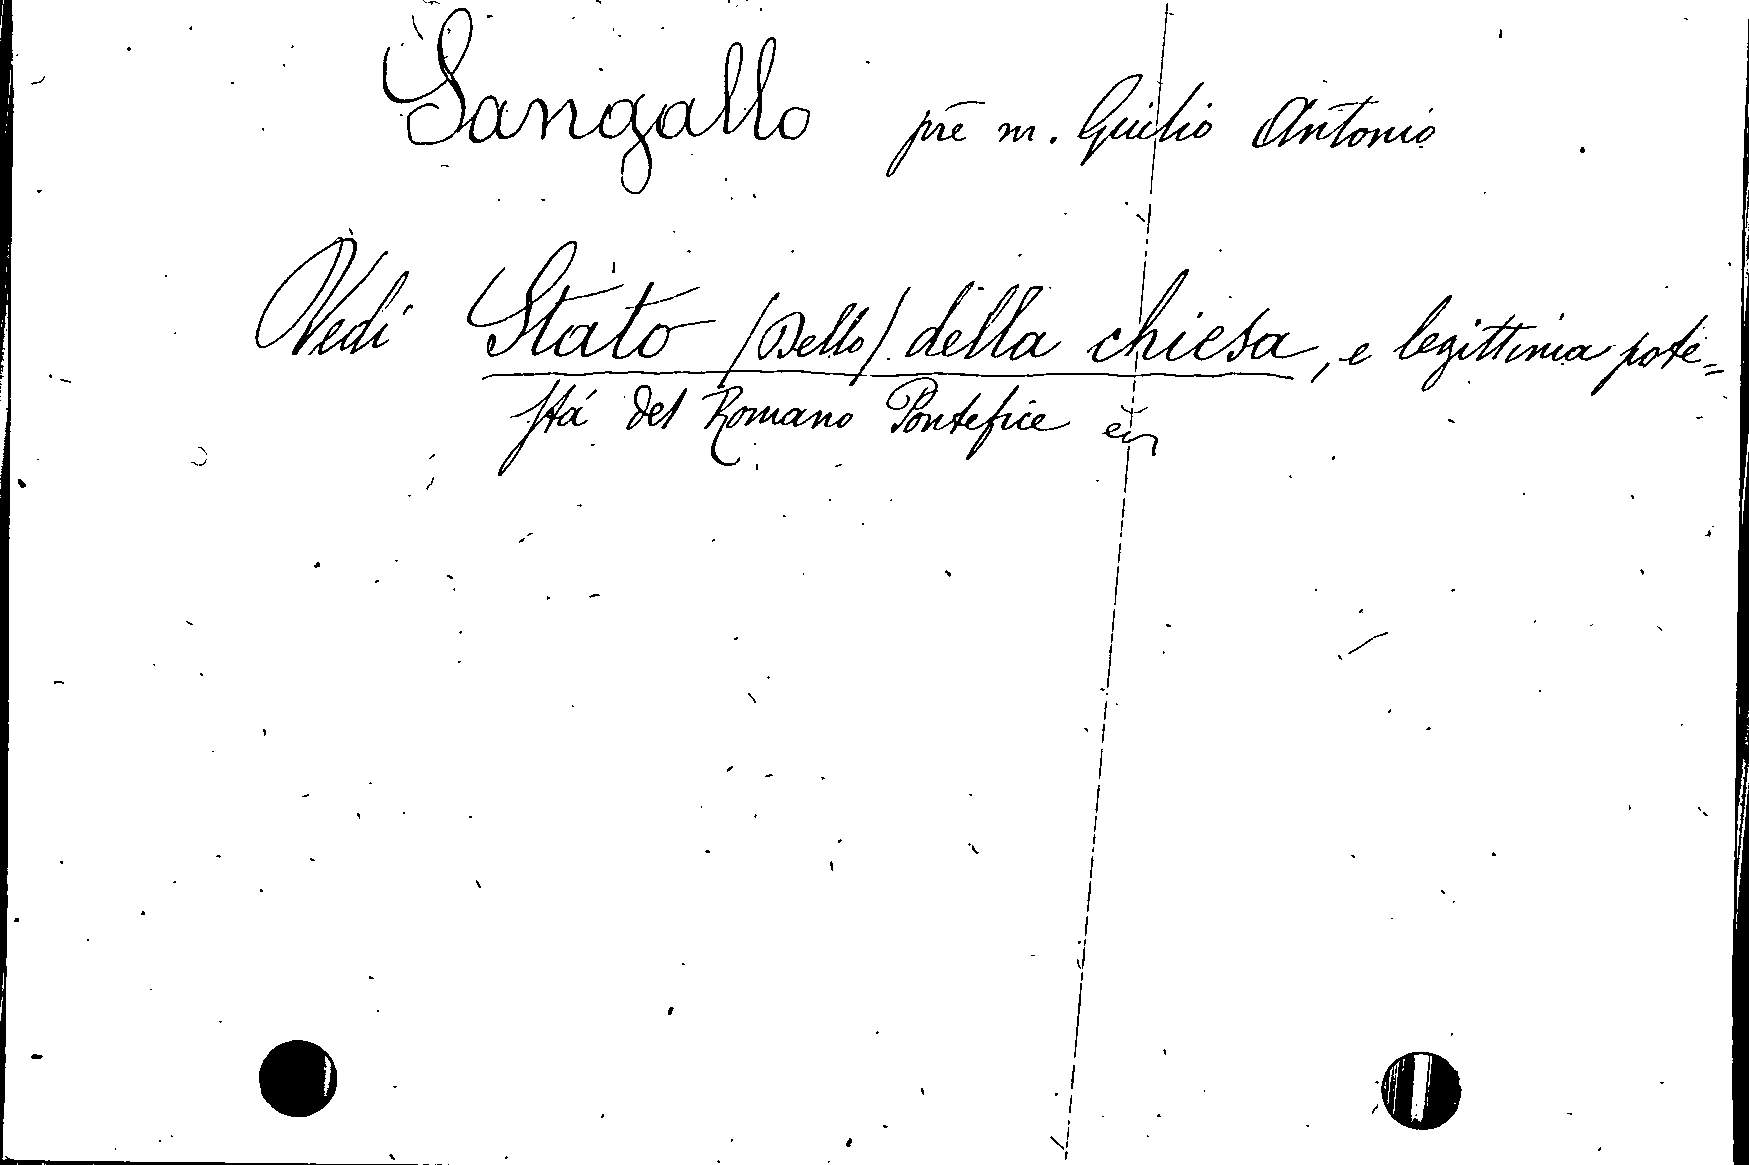 Sangallo prē m. Giulio Antonio
Vedi Stato (Dello) della chiesa, e legittima pote=
stá del Romano Pontefice